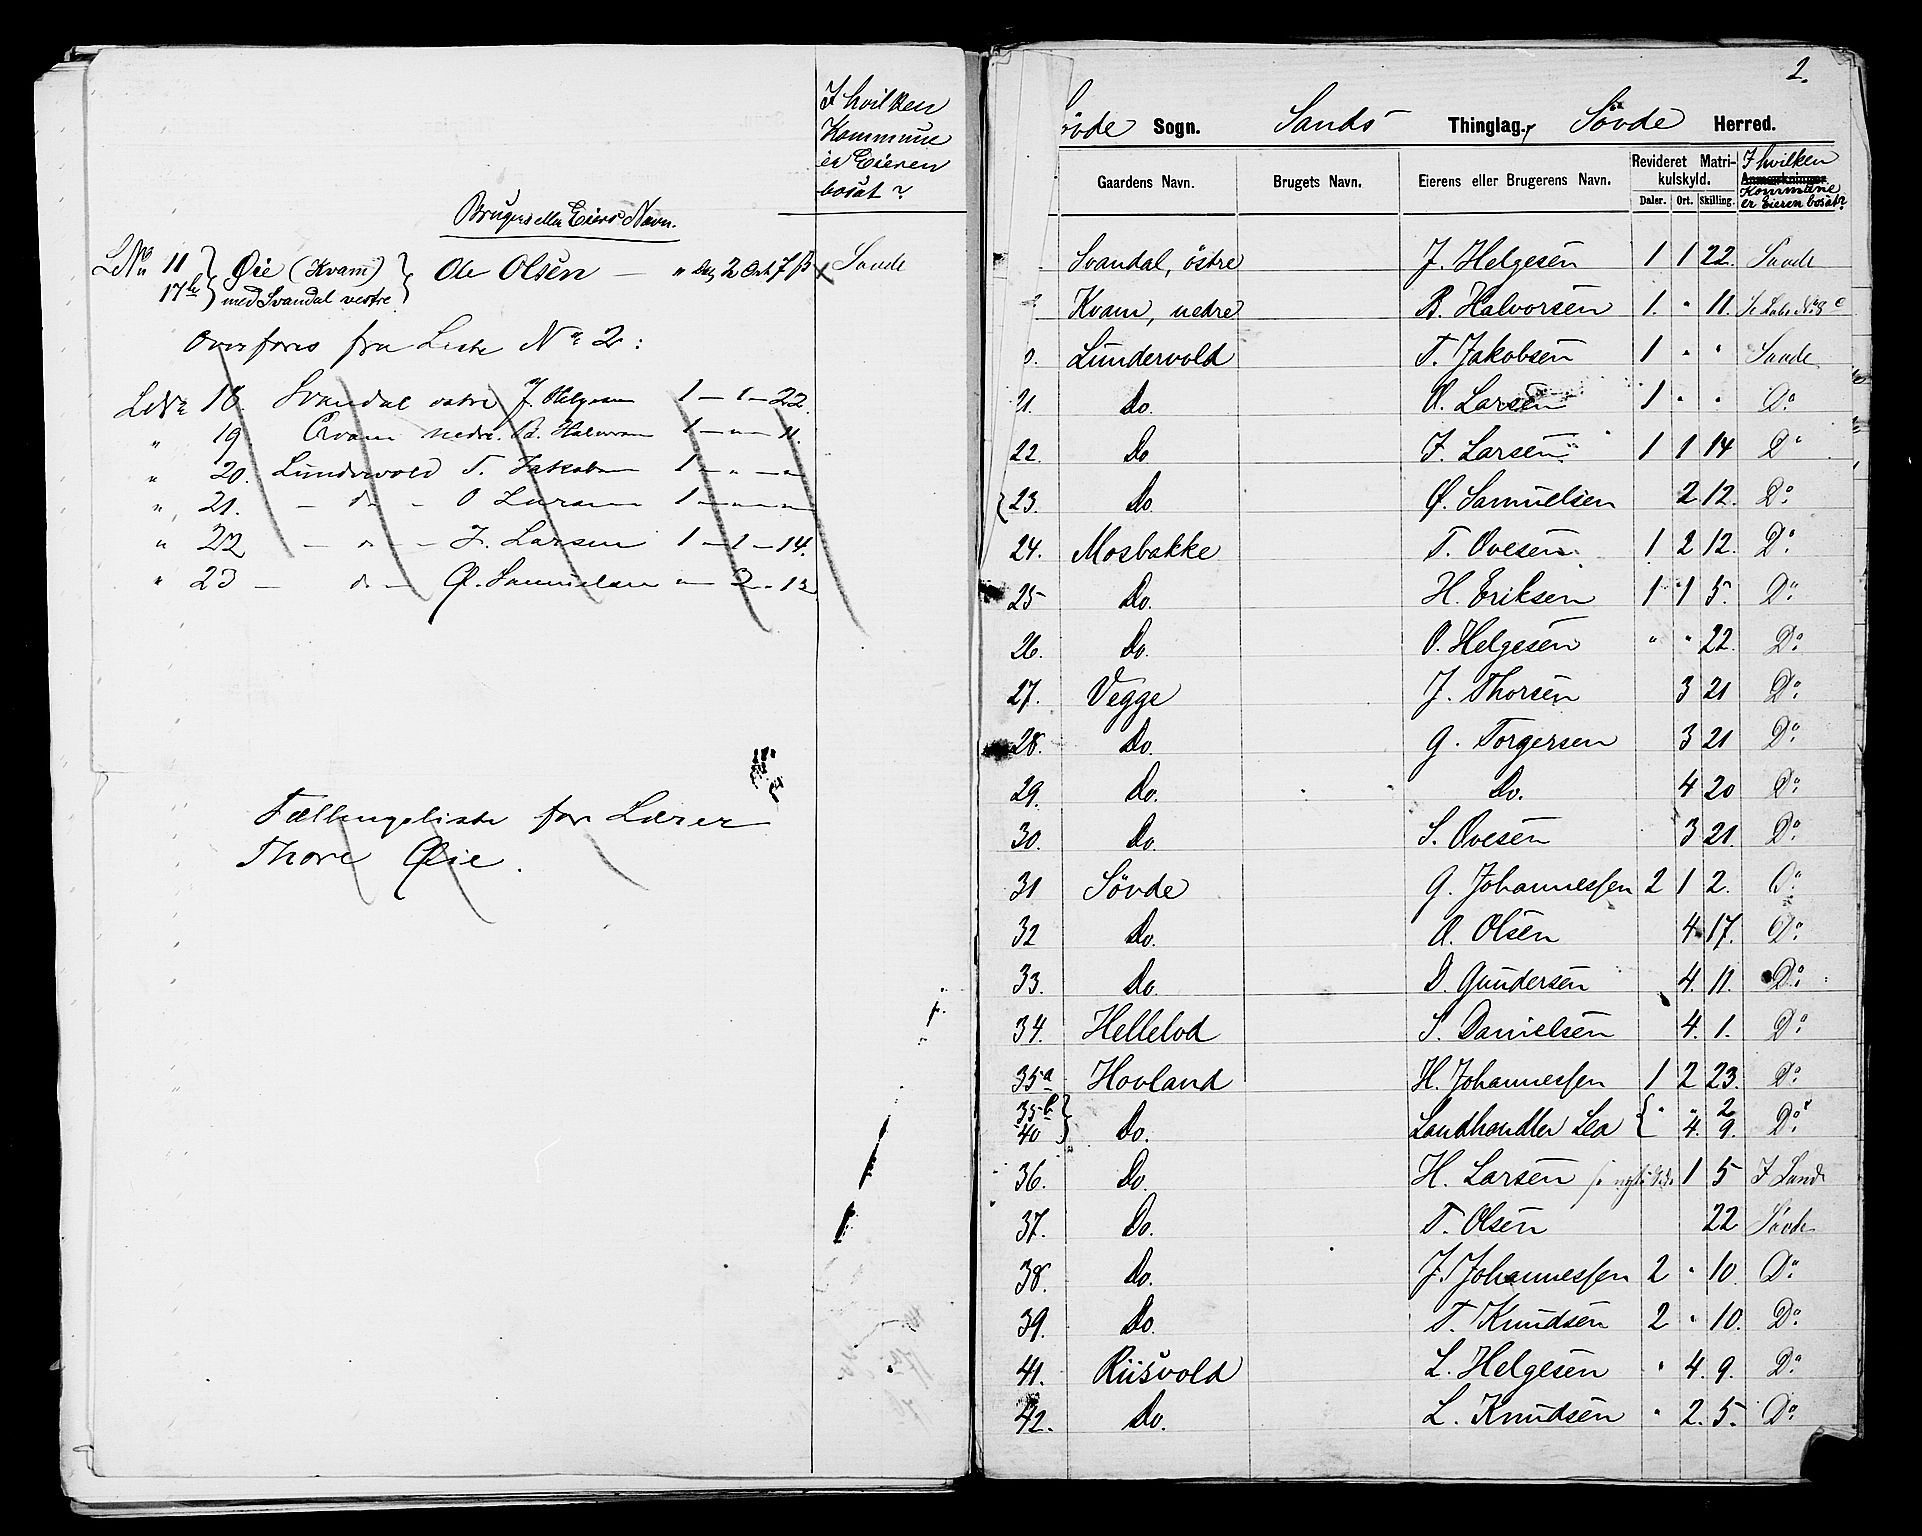 I hvilken
Kommune
er Eieren
bosat?
Brugers eller Eiers Navn.
LNo 11 Øie (Kvam) Ole Olsen — " Dlr 2 Ort 7 ß Søvde
17b med Svandal vestre
Overføres fra Liste No 2:
LNo 18. Svandal østre J. Helgesen 1 — 1 — 22.
" 19. Qvam nedre. B. Halvorsen 1 — " — 11.
" 20. Lundervold T. Jakobsen 1 — " — "
" 21. — do — O Larsen 1 — " — "
" 22 — " — J. Larsen 1 — 1 — 14.
" 23 — do — Ø. Samuelsen " — 2 — 12
Tællingsliste for Lærer
Thore Øie.
2.
øvde Sogn. Sands Thinglag, Søvde Herred.
Gaardens Navn. Brugets Navn. Eierens eller Brugerens Navn. Revideret Matri-kulskyld. Daler. Ort. Skilling. Anmærkninger I hvilken Kommune er Eieren bosat?
Svandal, östre J. Helgesen 1 1 22. Søvde
Kvam, nedre B. Halvorsen 1. " 11.
0. Lundervold T. Jakobsen 1 " " Søvde
21. Do. O. Larsen 1 " " Do
22. Do J. Larsen 1 1 14 Do
23. Do Ø. Samuelsen 2 12. Do
24. Mosbakke T. Ovesen 1 2 12. Do
25 Do. H. Eriksen 1 1 5. Do
26. Do. O. Helgesen " " 22. Do
27. Vegge J. Thorsen 3 21 Do
28. Do. G. Torgersen 3 21 Do
29. Do. Do. 4 20 Do
30. Do. S. Ovesen 3 21. Do
31 Sövde G. Johannessen 2 1 2. Do
32 Do. O. Olsen 4 17. Do
33. Do. D. Gundersen 4. 11. Do
34. Hellelod S. Danielsen 4. 1. Do
35a Hovland H. Johannessen 1 2 23. Do
35b " " 2
40 Do. Landhandler Lea 4. 9. Do
36. Do. H. Larsen 1 5 I Sand
37. Do. T. Olsen 22 Søvde
38. Do. J. Johannessen 2 " 10 Do
39. Do. T. Knudsen 2 " 10. Do
41. Riisvold L. Helgesen " 4. 9. Do
42. Do. L. Knudsen " 2. 5. Do